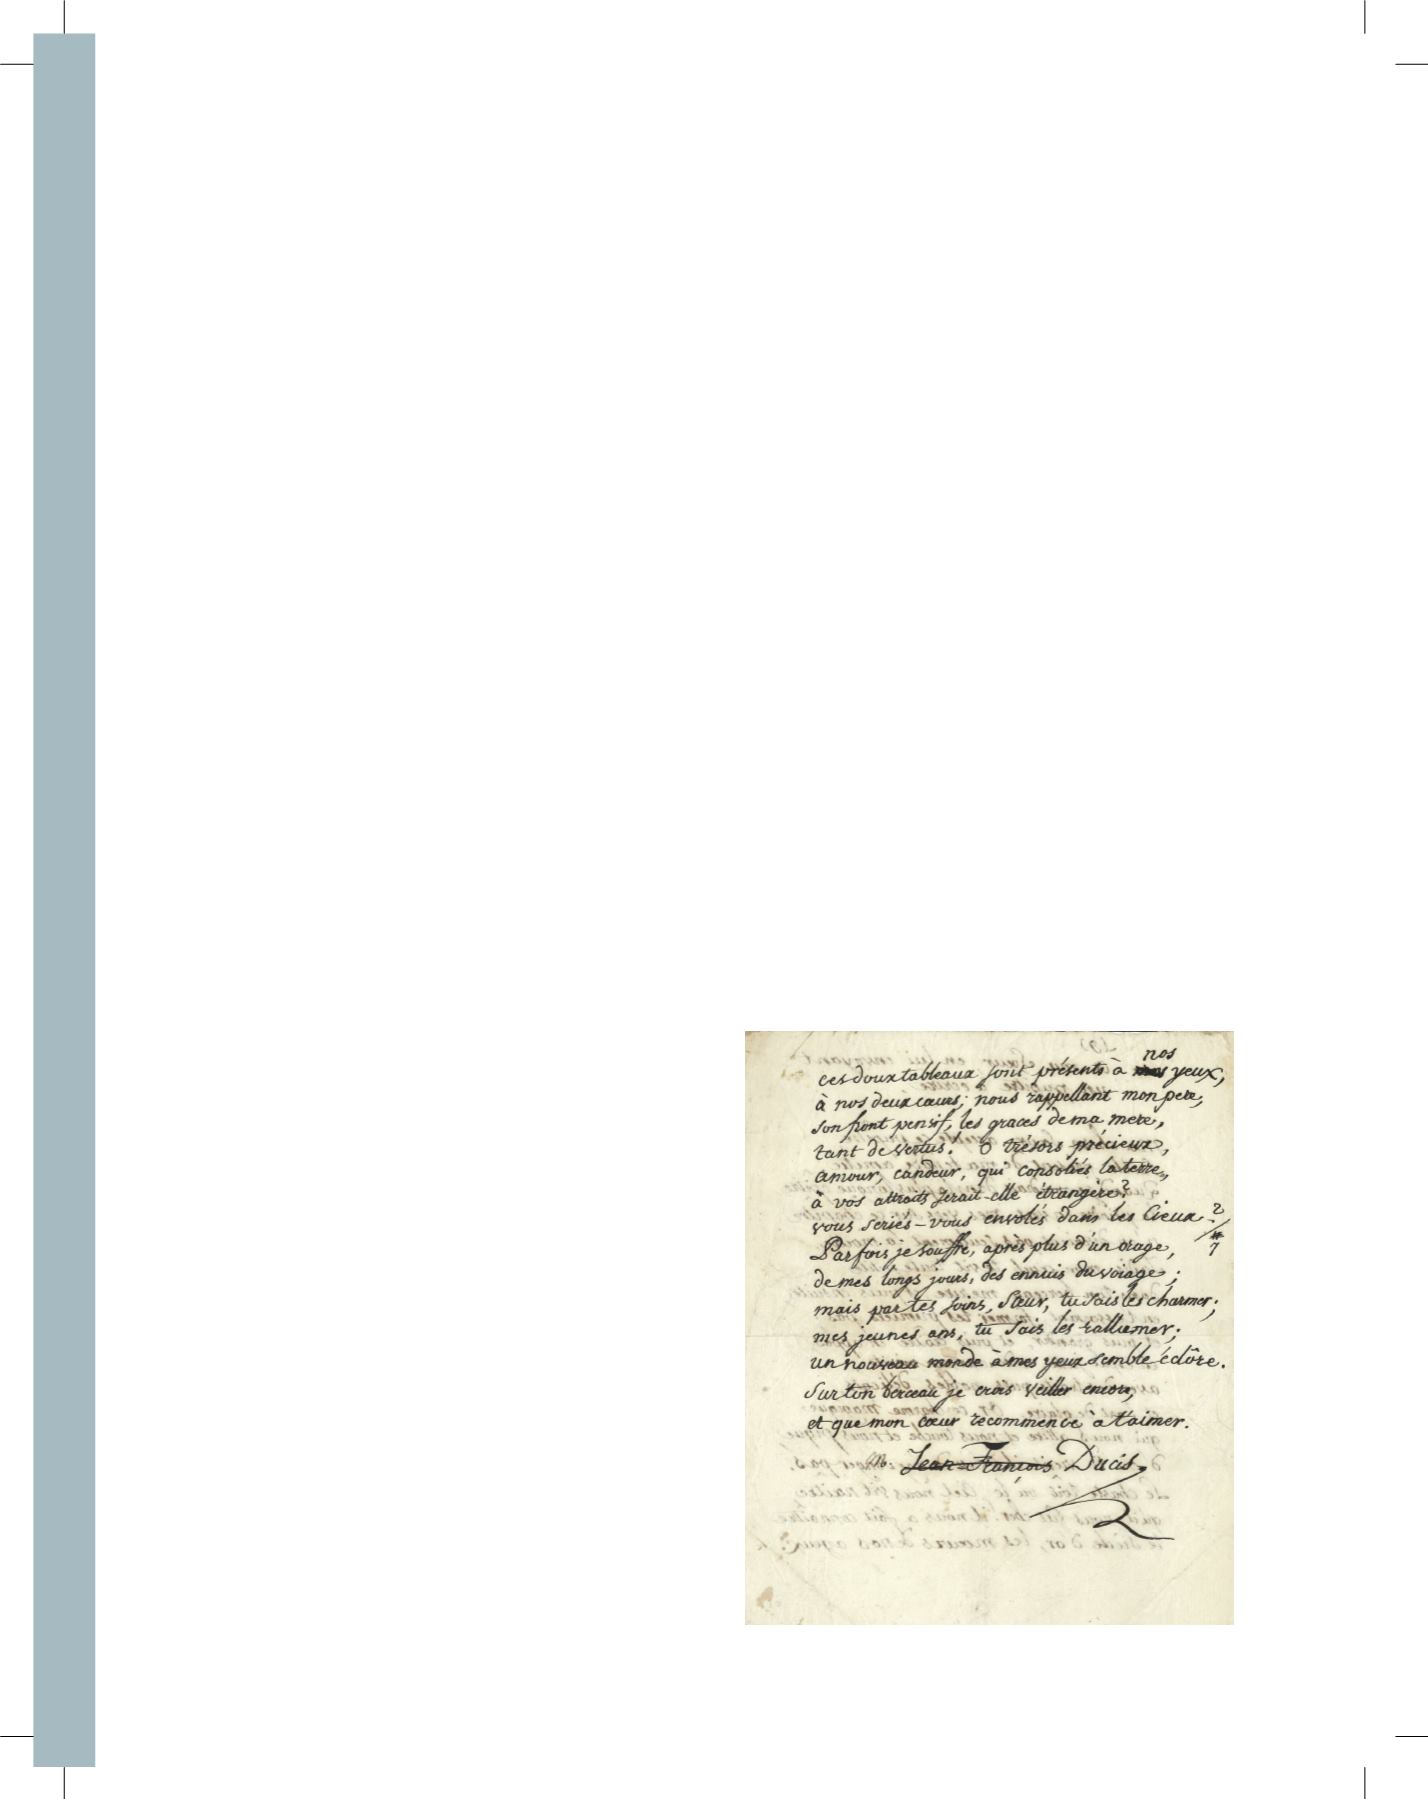 nos
ces doux tableaux sont présents à yeux,
à nos deux cœurs; nous rappellant mon pere,
son front pensif, les graces de ma mere,
tant de vertus! ô trésors précieux,
amour, candeur, qui consoliés la terre,
à vos attraits serait-elle étrangère?
vous seriés-vous envolés dans les Cieux?
Parfois je souffre, après plus d'un orage,
de mes longs jours, des ennuis du voiage;
mais par tes soins, Sœur, tu sais les charmer;
mes jeunes ans, tu sais les rallumer;
un nouveau monde à mes yeux semble éclôre.
Sur ton berceau je crois veiller encore,
et que mon cœur recommence à t'aimer.
Jean-François Ducis.